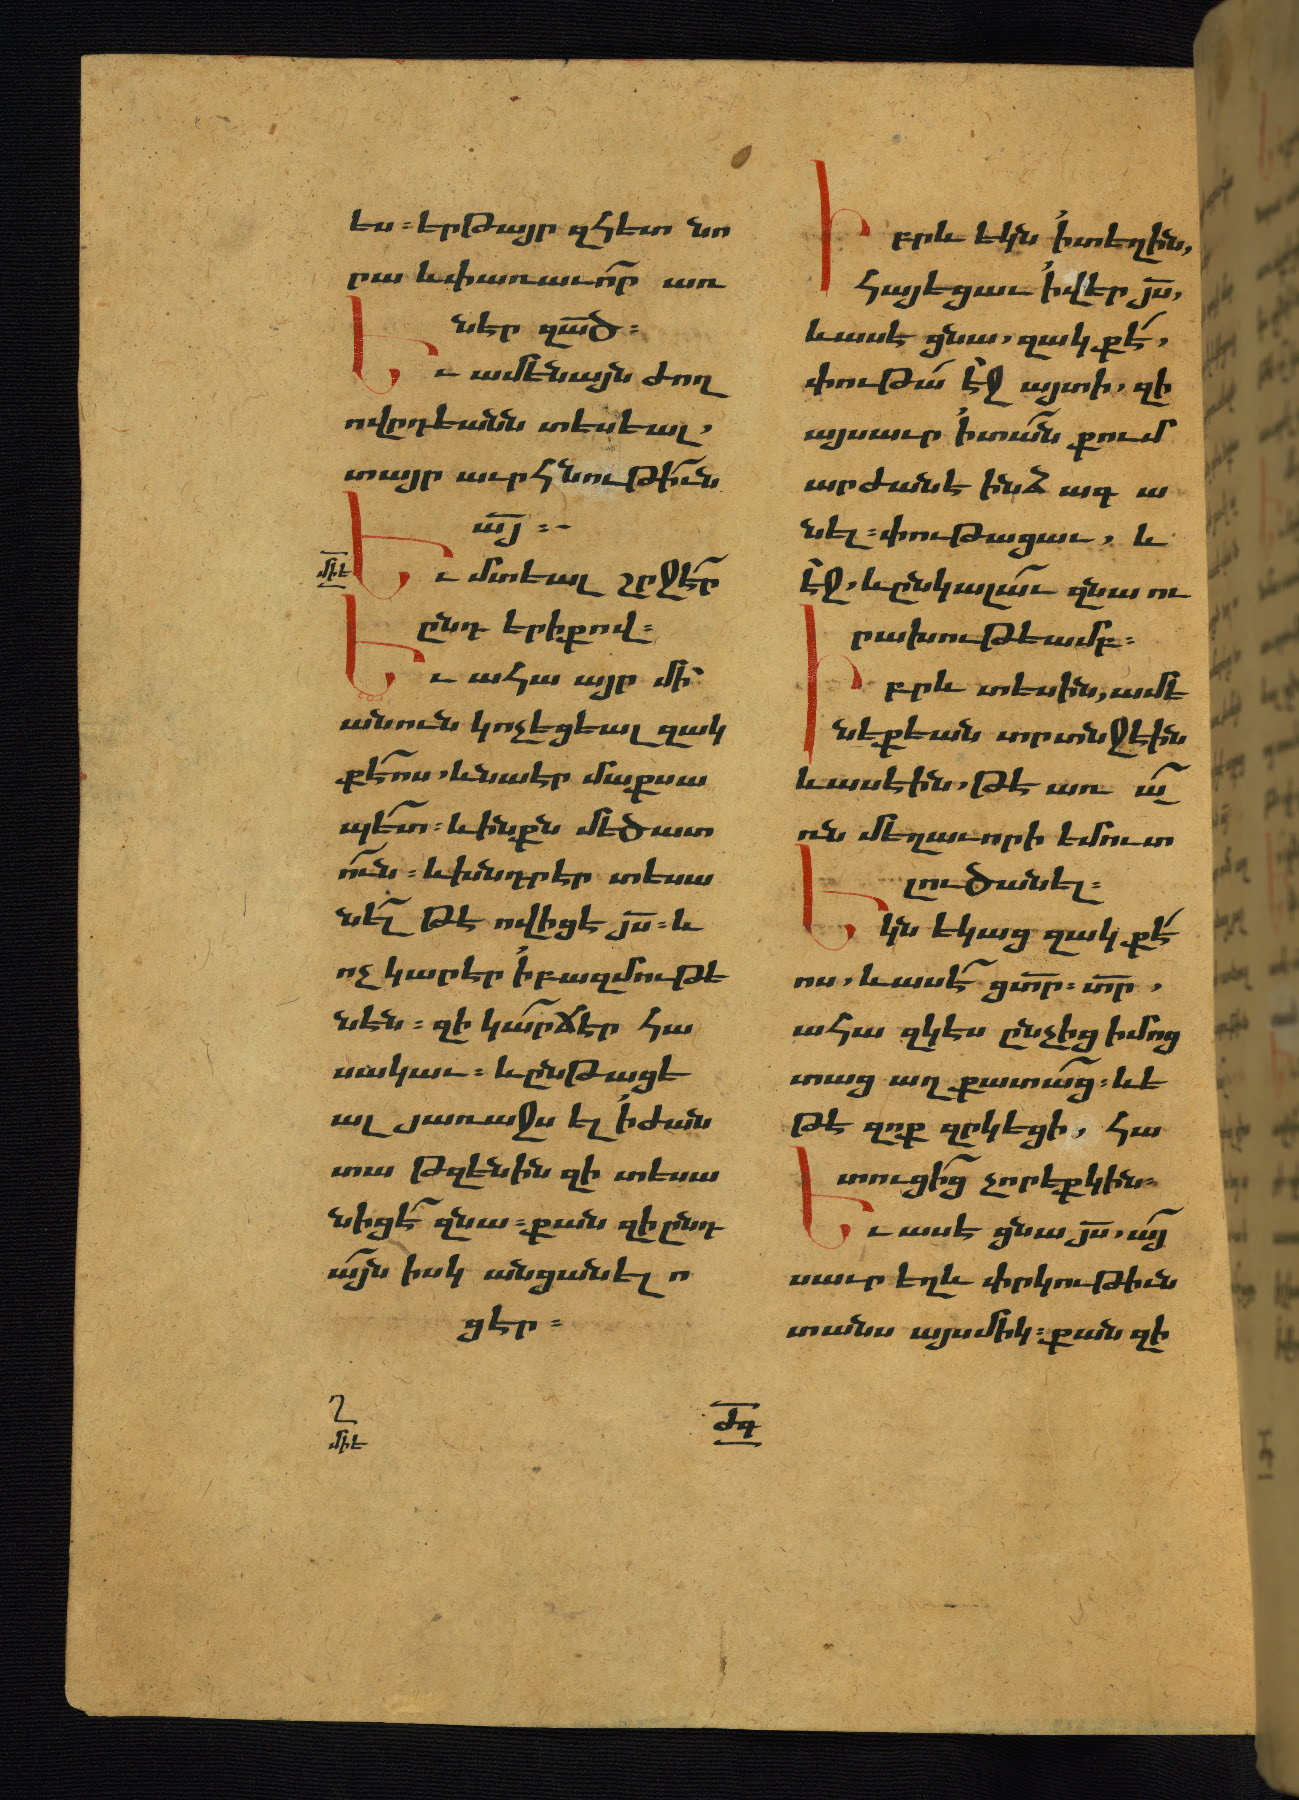 ես։ երթայր զհետ նո
րա և փառաւո՟ր առ
նէր զա՟ծ։
Եւ ամենայն ժող
ովըրդեանն տեսեալ,
տայր աւրհնութի՟ւն
ա՟յ։-
միե
Եւ մտեալ շըջէ՟ր
ընդ երիքով։
Եւ ահա այր մի՟
անուն կոչեցեալ զակ
քէ՟ոս, և նա էր մաքսա
պե՟տ։ և ինքն մեծատ
ո՟ւն։ և խնդրէր տեսա
նե՟լ թե ովիցէ յ՟ս։ և
ոչ կարէր ի բազմութե
նէն։ զի կա՟րճէր հա
սակաւ։ և ընթացե
ալ յառաջս ել ի ժան
տա թզենին զի տեսա
նիցէ՟ զնա։ քան զի ընդ
ա՟յն իսկ անցանել ո
ցէր։
Իբրև եկն ի տեղին,
հայեցաւ ի վեր յ՟ս,
և ասէ ցնա, զակքէ՛,
փութա՛ է՟ջ այտի, զի
այսաւր ի տա՟ն քում
արժանէ ինձ ագ ա
նել։ փութացաւ, և
է՟ջ, և ընկալա՟ւ զնա ու
րախութեամբ։
Իբրև տեսին, ամե
նեքեան տրտնջէին
և ասէին, թե առ ա՟յ
ռն մեղաւորի եմուտ
լուծանել։
Եկն եկաց զակքէ՛
ոս, և ասէ՟ ցտ՟ր։ տ՟ր,
ահա զկէս ընչից իմոց
տաց աղքատա՟ց։ և ե
թե զոք զըկեցի, հա
տուցի՟ց չորեքկին։
Եւ ասէ ցնա յ՟ս, ա՟յ
սաւր եղև փրկութիւն
տանս այսմիկ։ քան զի
Ղ
միե
ժգ